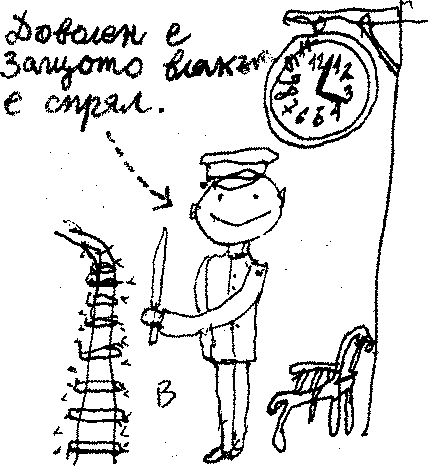 Доволен е
Защото влакът
е спрял.
12
1
2
3
4
5
6
В